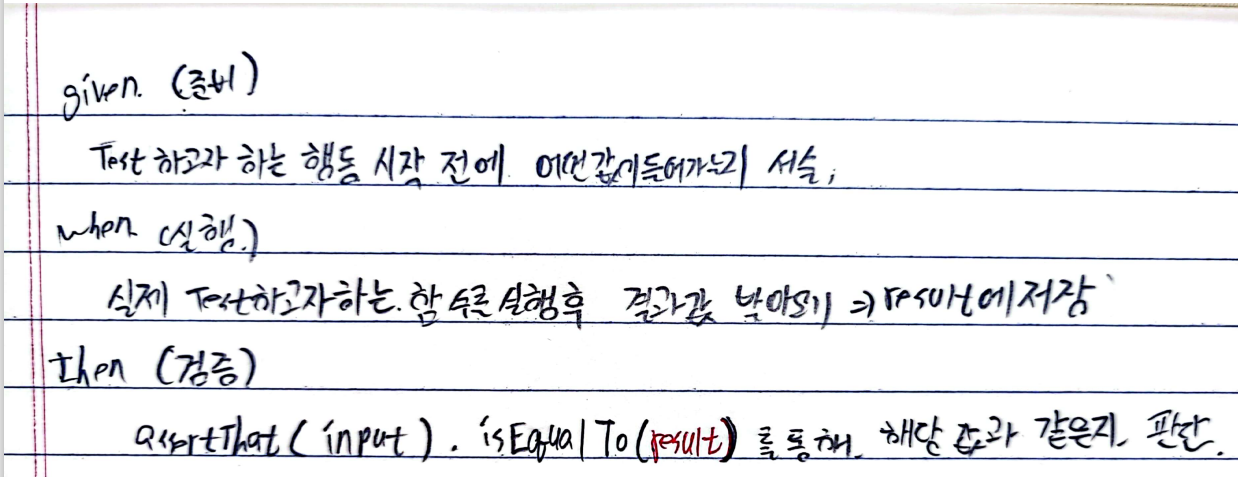 given. (준비)
Test 하고자 하는 행동 시작 전에 어떤값이들어가는지 서술,
when (실행.)
실제 Test하고자하는. 함수를 실행후 결과값 받아오기 ⇒ result에 저장
then (검증)
assertThat ( input ) . isEqual To (result) 를 통해. 해당 값과 같은지. 판단.